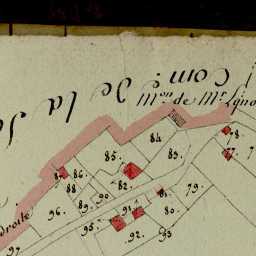 Com.e de la
M.on de M.r
84
78
85.
83.
77
7
87 86.
82.
88
79.
89
90
81
droite
96.
80
91
95.
92.
93
97